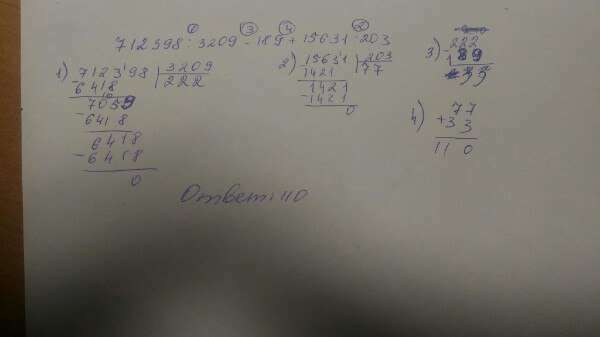 ① ③ ④ ②
712398 : 3209 - 189 + 15631 : 203
1) 712398 | 3209
6418 | 222
7059
- 6418
6418
- 6418
0
2) 15631 | 203
1421 | 77
1421
- 1421
0
3) 222
- 189
33
4) 77
+ 33
110
Ответ: 110